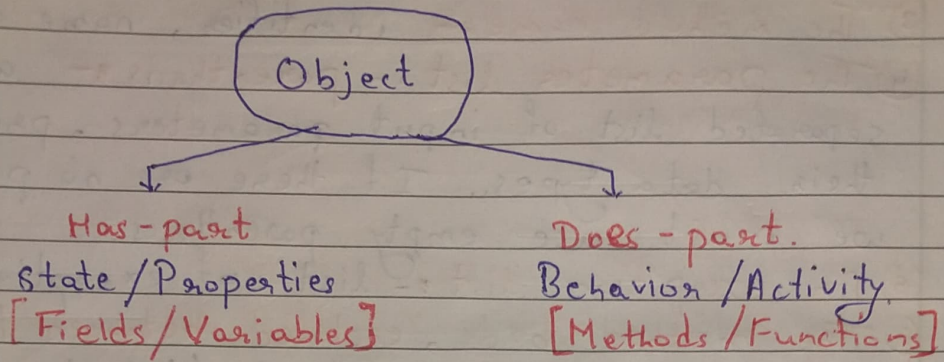 Object
Has-part
State/Properties
[Fields/Variables]
Does-part.
Behavior/Activity
[Methods/Functions]